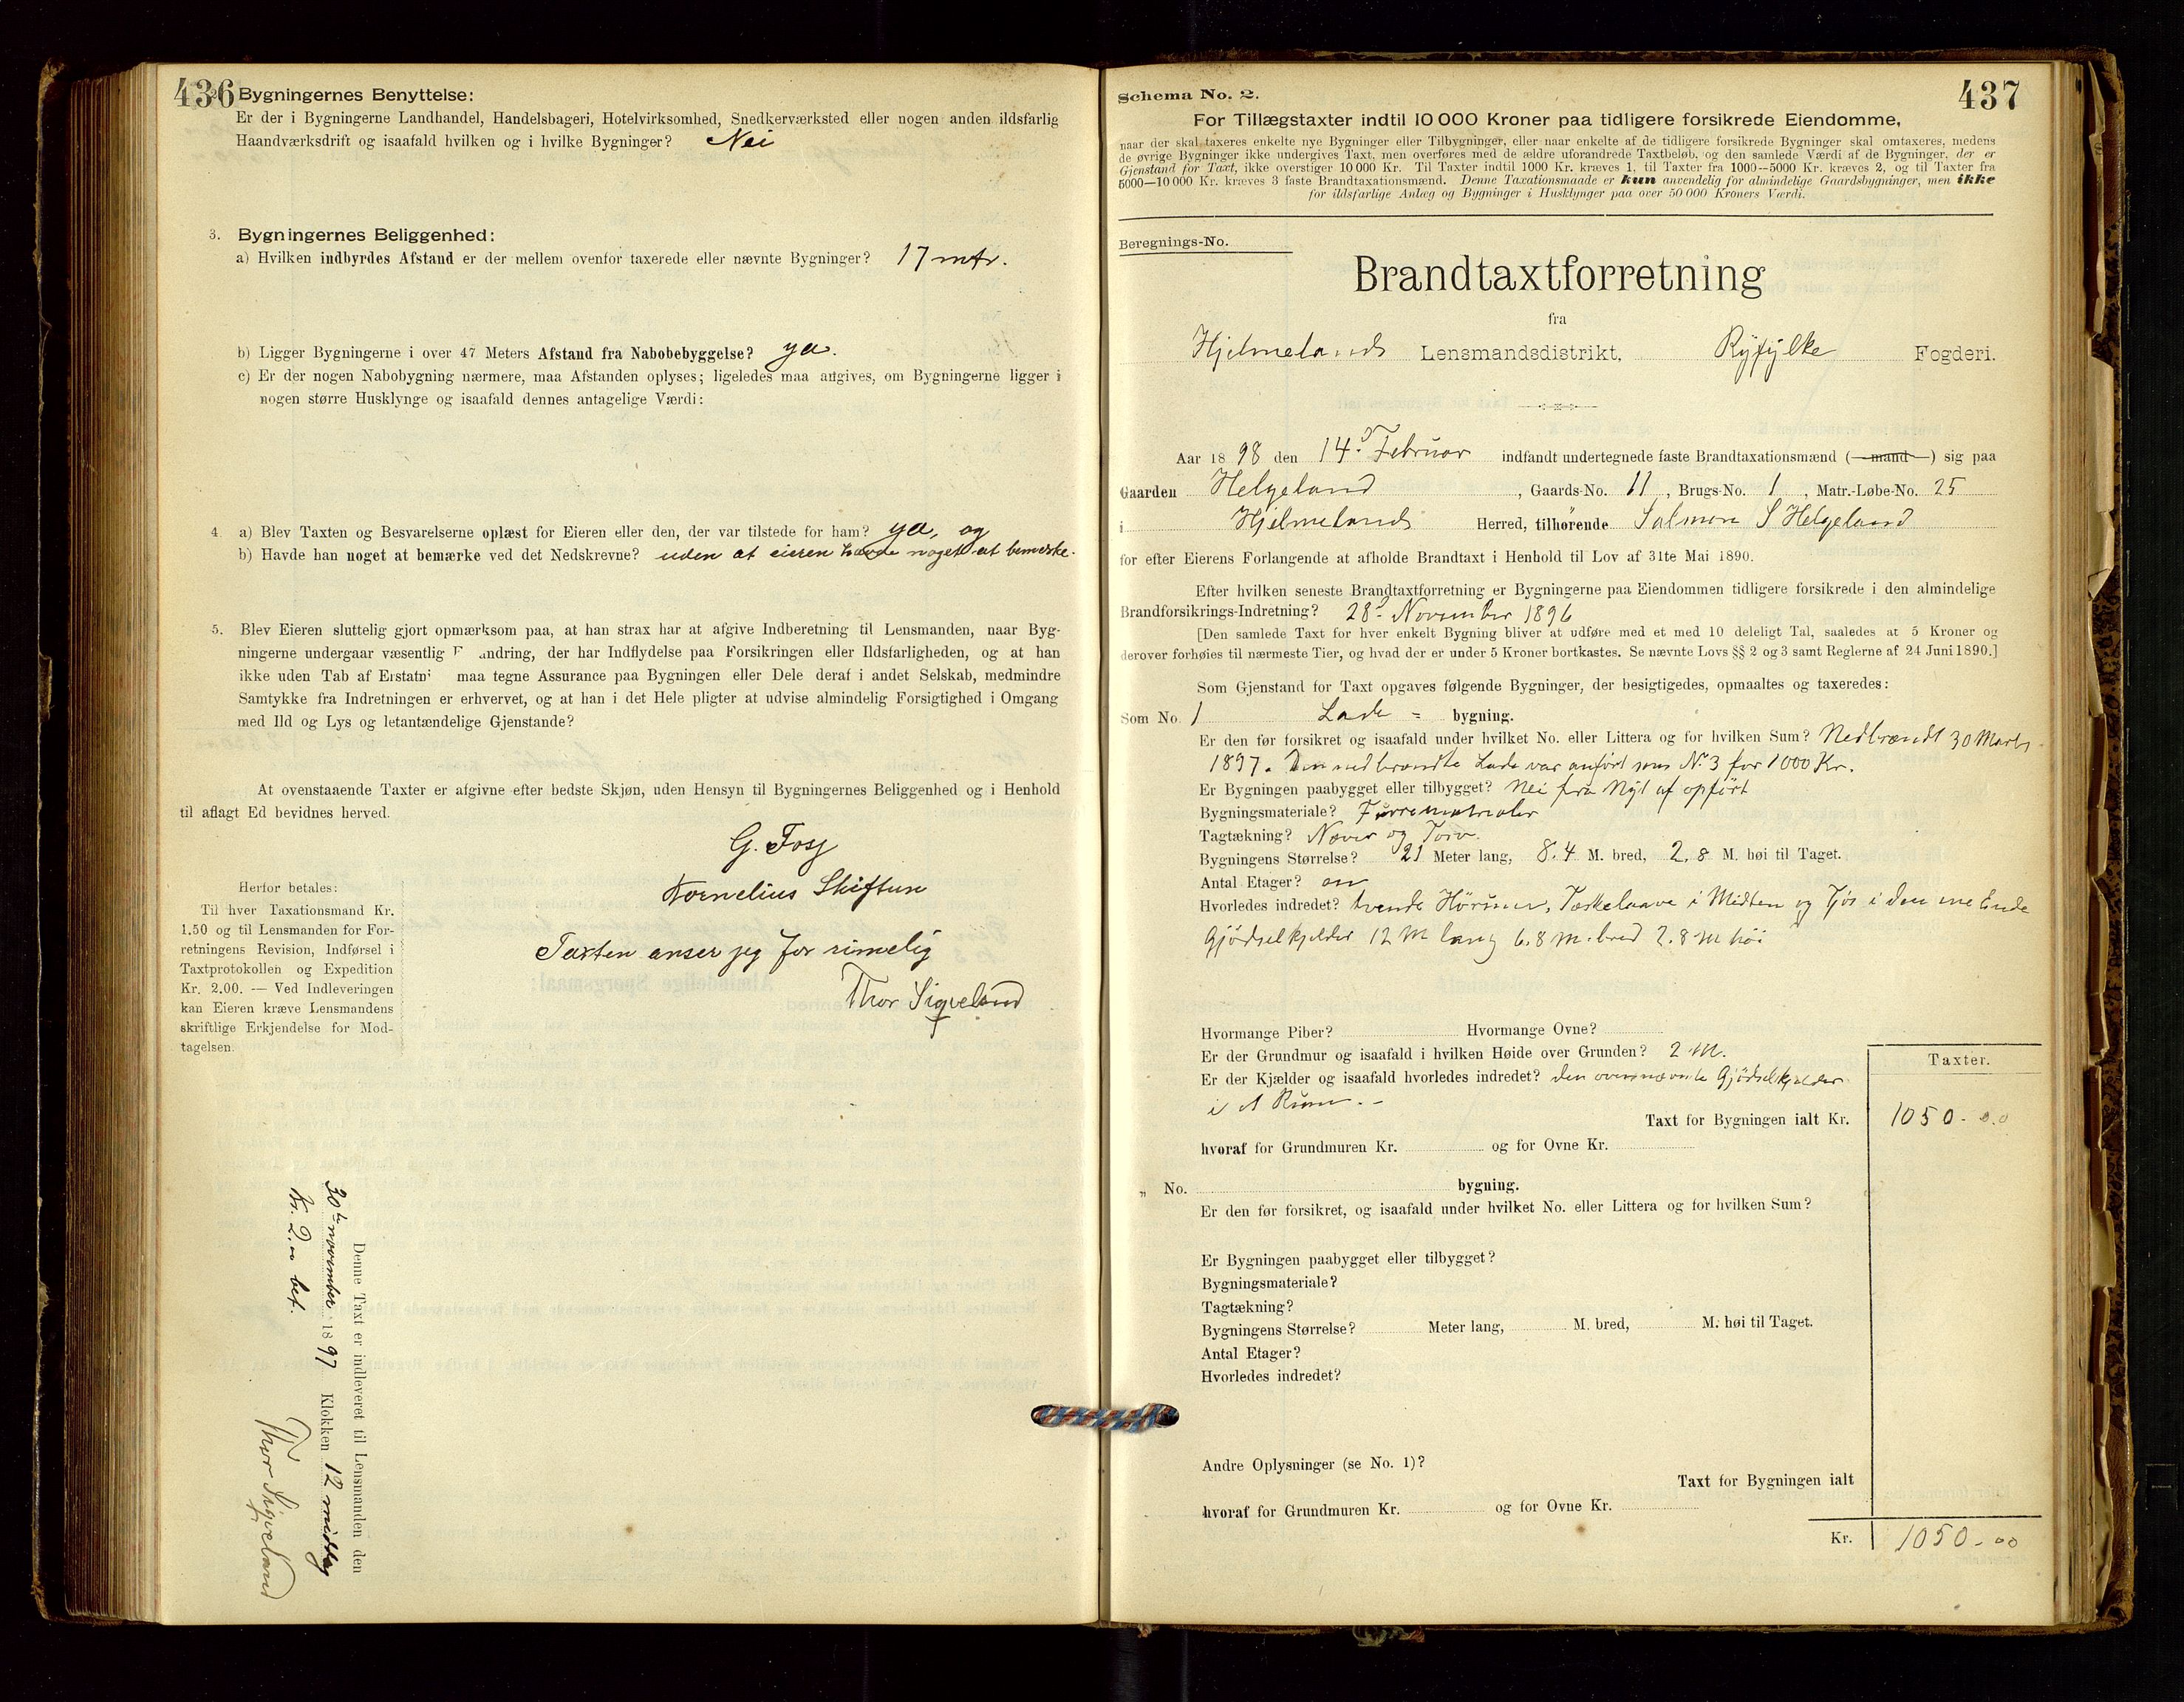 436
Bygningernes Benyttelse:
Er der i Bygningerne Landhandel, Handelsbageri, Hotelvirksomhed, Snedkerværksted eller nogen anden ildsfarlig
Haandværksdrift og isaafald hvilken og i hvilke Bygninger? Nei
3. Bygningernes Beliggenhed:
a) Hvilken indbyrdes Afstand er der mellem ovenfor taxerede eller nævnte Bygninger? 17 mtr.
b) Ligger Bygningerne i over 47 Meters Afstand fra Nabobebyggelse? ya.
c) Er der nogen Nabobygning nærmere, maa Afstanden oplyses; ligeledes maa angives, om Bygningerne ligger i
nogen større Husklynge og isaafald dennes antagelige Værdi:
4. a) Blev Taxten og Besvarelserne oplæst for Eieren eller den, der var tilstede for ham? ya, og
b) Havde han noget at bemærke ved det Nedskrevne? uden at eieren havde noget at bemærke.
5. Blev Eieren sluttelig gjort opmærksom paa, at han strax har at afgive Indberetning til Lensmanden, naar Byg-
ningerne undergaar væsentlig F andring, der har Indflydelse paa Forsikringen eller Ildsfarligheden, og at han
ikke uden Tab af Erstatn maa tegne Assurance paa Bygningen eller Dele deraf i andet Selskab, medmindre
Samtykke fra Indretningen er erhvervet, og at han i det Hele pligter at udvise almindelig Forsigtighed i Omgang
med Ild og Lys og letantændelige Gjenstande?
At ovenstaaende Taxter er afgivne efter bedste Skjøn, uden Hensyn til Bygningernes Beliggenhed og i Henhold
til aflagt Ed bevidnes herved.
G. Fosz
Kornelius Skiftun
Taxten anser jeg for rimelig
Thor Sigveland
Herfor betales:
Til hver Taxationsmand Kr.
1.50 og til Lensmanden for For-
retningens Revision, Indførsel i
Taxtprotokollen og Expedition
Kr. 2.00. — Ved Indleveringen
kan Eieren kræve Lensmandens
skriftlige Erkjendelse for Mod-
tagelsen.
Denne Taxt er indleveret til Lensmanden den
30te november 1897 Klokken 12 middag
Kr. 2.00 bet.
Thor Sigveland
Schema No. 2.
437
For Tillægstaxter indtil 10 000 Kroner paa tidligere forsikrede Eiendomme,
naar der skal taxeres enkelte nye Bygninger eller Tilbygninger, eller naar enkelte af de tidligere forsikrede Bygninger skal omtaxeres, medens
de øvrige Bygninger ikke undergives Taxt, men overføres med de ældre uforandrede Taxtbeløb, og den samlede Værdi af de Bygninger, der er
Gjenstand for Taxt, ikke overstiger 10 000 Kr. Til Taxter indtil 1000 Kr. kræves 1, til Taxter fra 1000—5000 Kr. kræves 2, og til Taxter fra
5000—10 000 Kr. kræves 3 faste Brandtaxationsmænd. Denne Taxationsmaade er kun anvendelig for almindelige Gaardsbygninger, men ikke
for ildsfarlige Anlæg og Bygninger i Husklynger paa over 50 000 Kroners Værdi.
Beregnings-No.
Brandtaxtforretning
fra
Hjelmelands Lensmandsdistrikt, Ryfylke Fogderi.
Aar 1898 den 14d Februar indfandt undertegnede faste Brandtaxationsmænd (mand) sig paa
Gaarden Helgeland, Gaards-No. 11, Brugs-No. 1, Matr.-Løbe-No. 25
i Hjelmelands Herred, tilhørende Salmon S Helgeland
for efter Eierens Forlangende at afholde Brandtaxt i Henhold til Lov af 31te Mai 1890.
Efter hvilken seneste Brandtaxtforretning er Bygningerne paa Eiendommen tidligere forsikrede i den almindelige
Brandforsikrings-Indretning? 28d November 1896
[Den samlede Taxt for hver enkelt Bygning bliver at udføre med et med 10 deleligt Tal, saaledes at 5 Kroner og
derover forhøies til nærmeste Tier, og hvad der er under 5 Kroner bortkastes. Se nævnte Lovs §§ 2 og 3 samt Reglerne af 24 Juni 1890.]
Som Gjenstand for Taxt opgaves følgende Bygninger, der besigtigedes, opmaaltes og taxeredes:
Som No. 1 Lade = bygning.
Er den før forsikret og isaafald under hvilket No. eller Littera og for hvilken Sum? Nedbrændt 30 Marts
1897. Den nedbrændte Lade var anført som No 3 for 1000 Kr.
Er Bygningen paabygget eller tilbygget? Nei fra Nyt af opført
Bygningsmateriale? Furrematrialer
Tagtækning? Næver og Torv.
Bygningens Størrelse? 21 Meter lang, 8.4 M. bred, 2.8 M. høi til Taget.
Antal Etager? en
Hvorledes indredet? tvende Hørum, Tærskelaave i Midten og Fjøs i den ene Ende
Gjödselkjelder 12 M lang 6.8 M. bred 2.8 M höi
Hvormange Piber? Hvormange Ovne?
Er der Grundmur og isaafald i hvilken Høide over Grunden? 2 M.
Er der Kjælder og isaafald hvorledes indredet? den ovennævnte Gjödselkjelder
i 1 Rum. -
Taxter.
Taxt for Bygningen ialt Kr. 1050-00
hvoraf for Grundmuren Kr. og for Ovne Kr.
„ No. bygning.
Er den før forsikret, og isaafald under hvilket No. eller Littera og for hvilken Sum?
Er Bygningen paabygget eller tilbygget?
Bygningsmateriale?
Tagtækning?
Bygningens Størrelse? Meter lang, M. bred, M. høi til Taget.
Antal Etager?
Hvorledes indredet?
Andre Oplysninger (se No. 1)?
Taxt for Bygningen ialt
hvoraf for Grundmuren Kr. og for Ovne Kr.
Kr. 1050-00